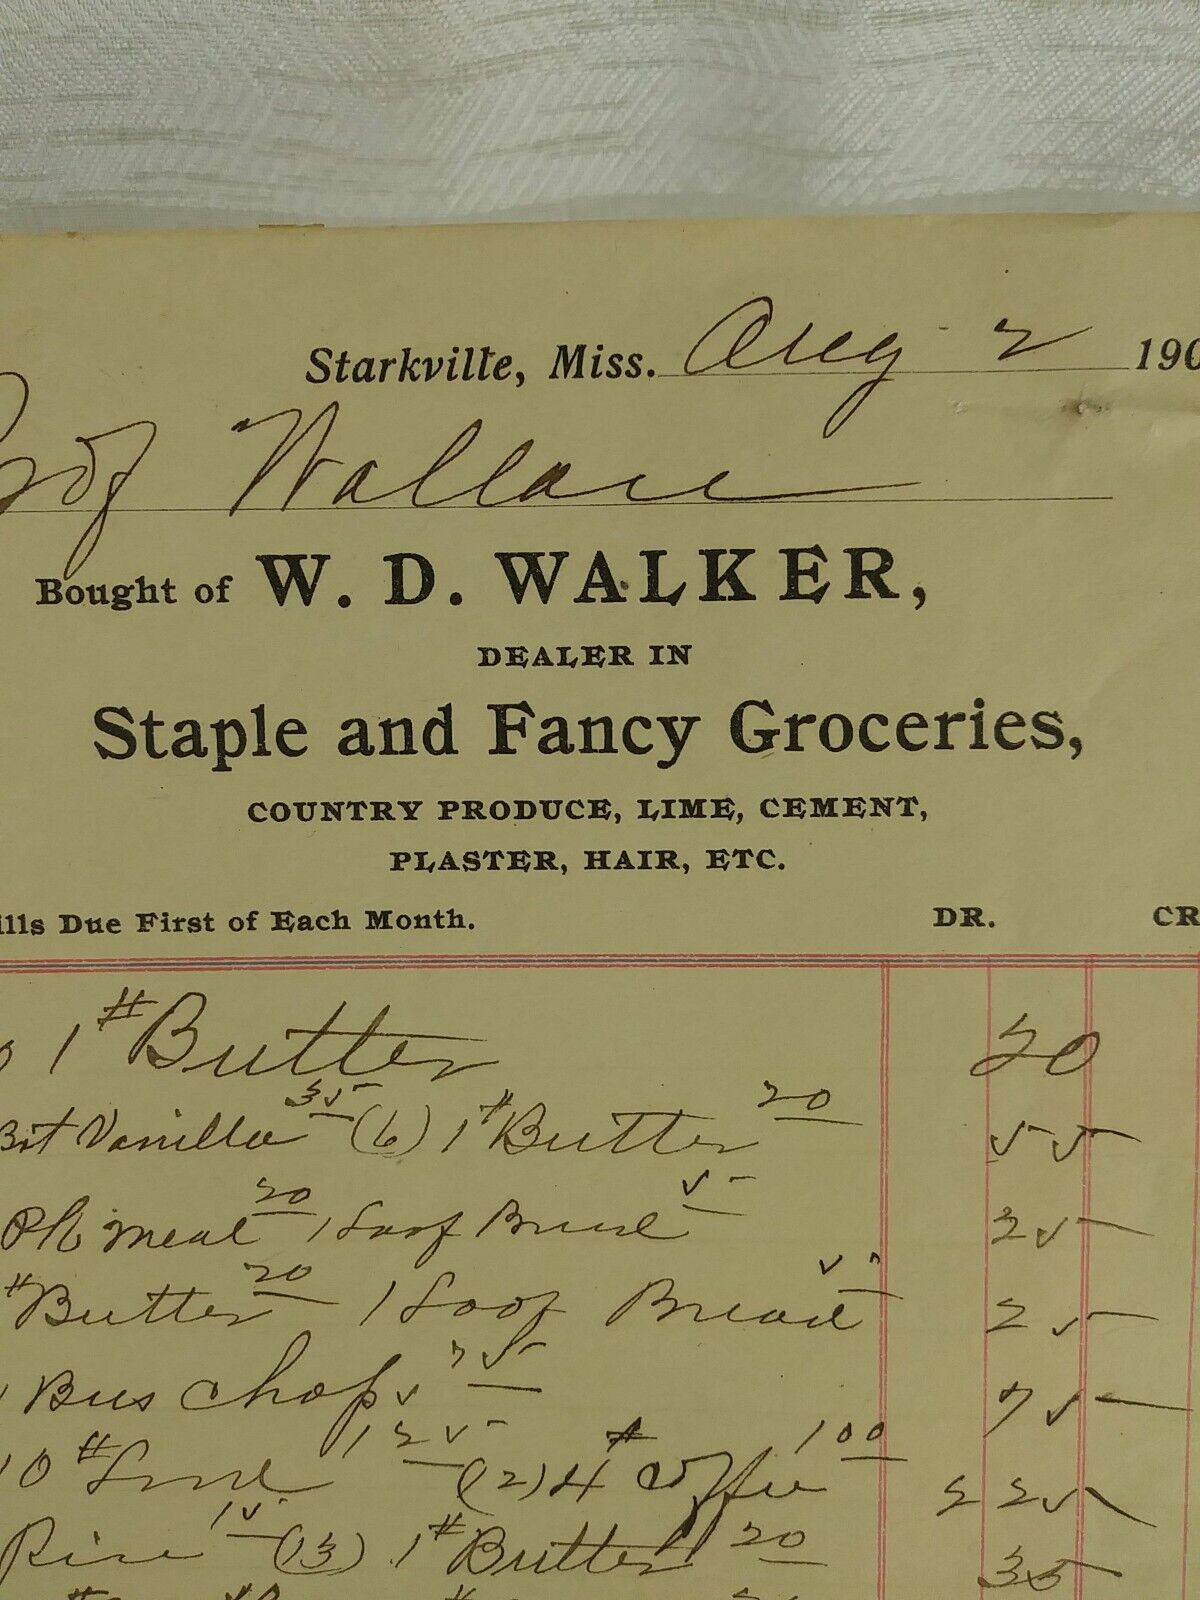 Starkville, Miss. Aug 2 190
Prof Wallace
Bought of W. D. WALKER,
DEALER IN
Staple and Fancy Groceries,
COUNTRY PRODUCE, LIME, CEMENT,
PLASTER, HAIR, ETC.
ills Due First of Each Month. DR. CR
1 # Butter 20
Bot Vanilla 35 (6) 1 # Butter 20 55
Pk Meal 20 1 Loof Bread 5 25
# Butter 20 1 Loof Bread 5 25
Bus Chops 75 75
10 # Lard 1 25 (2) 4 # Coffee 1 00 2 25
Rice 15 (3) 1 # Butter 20 35